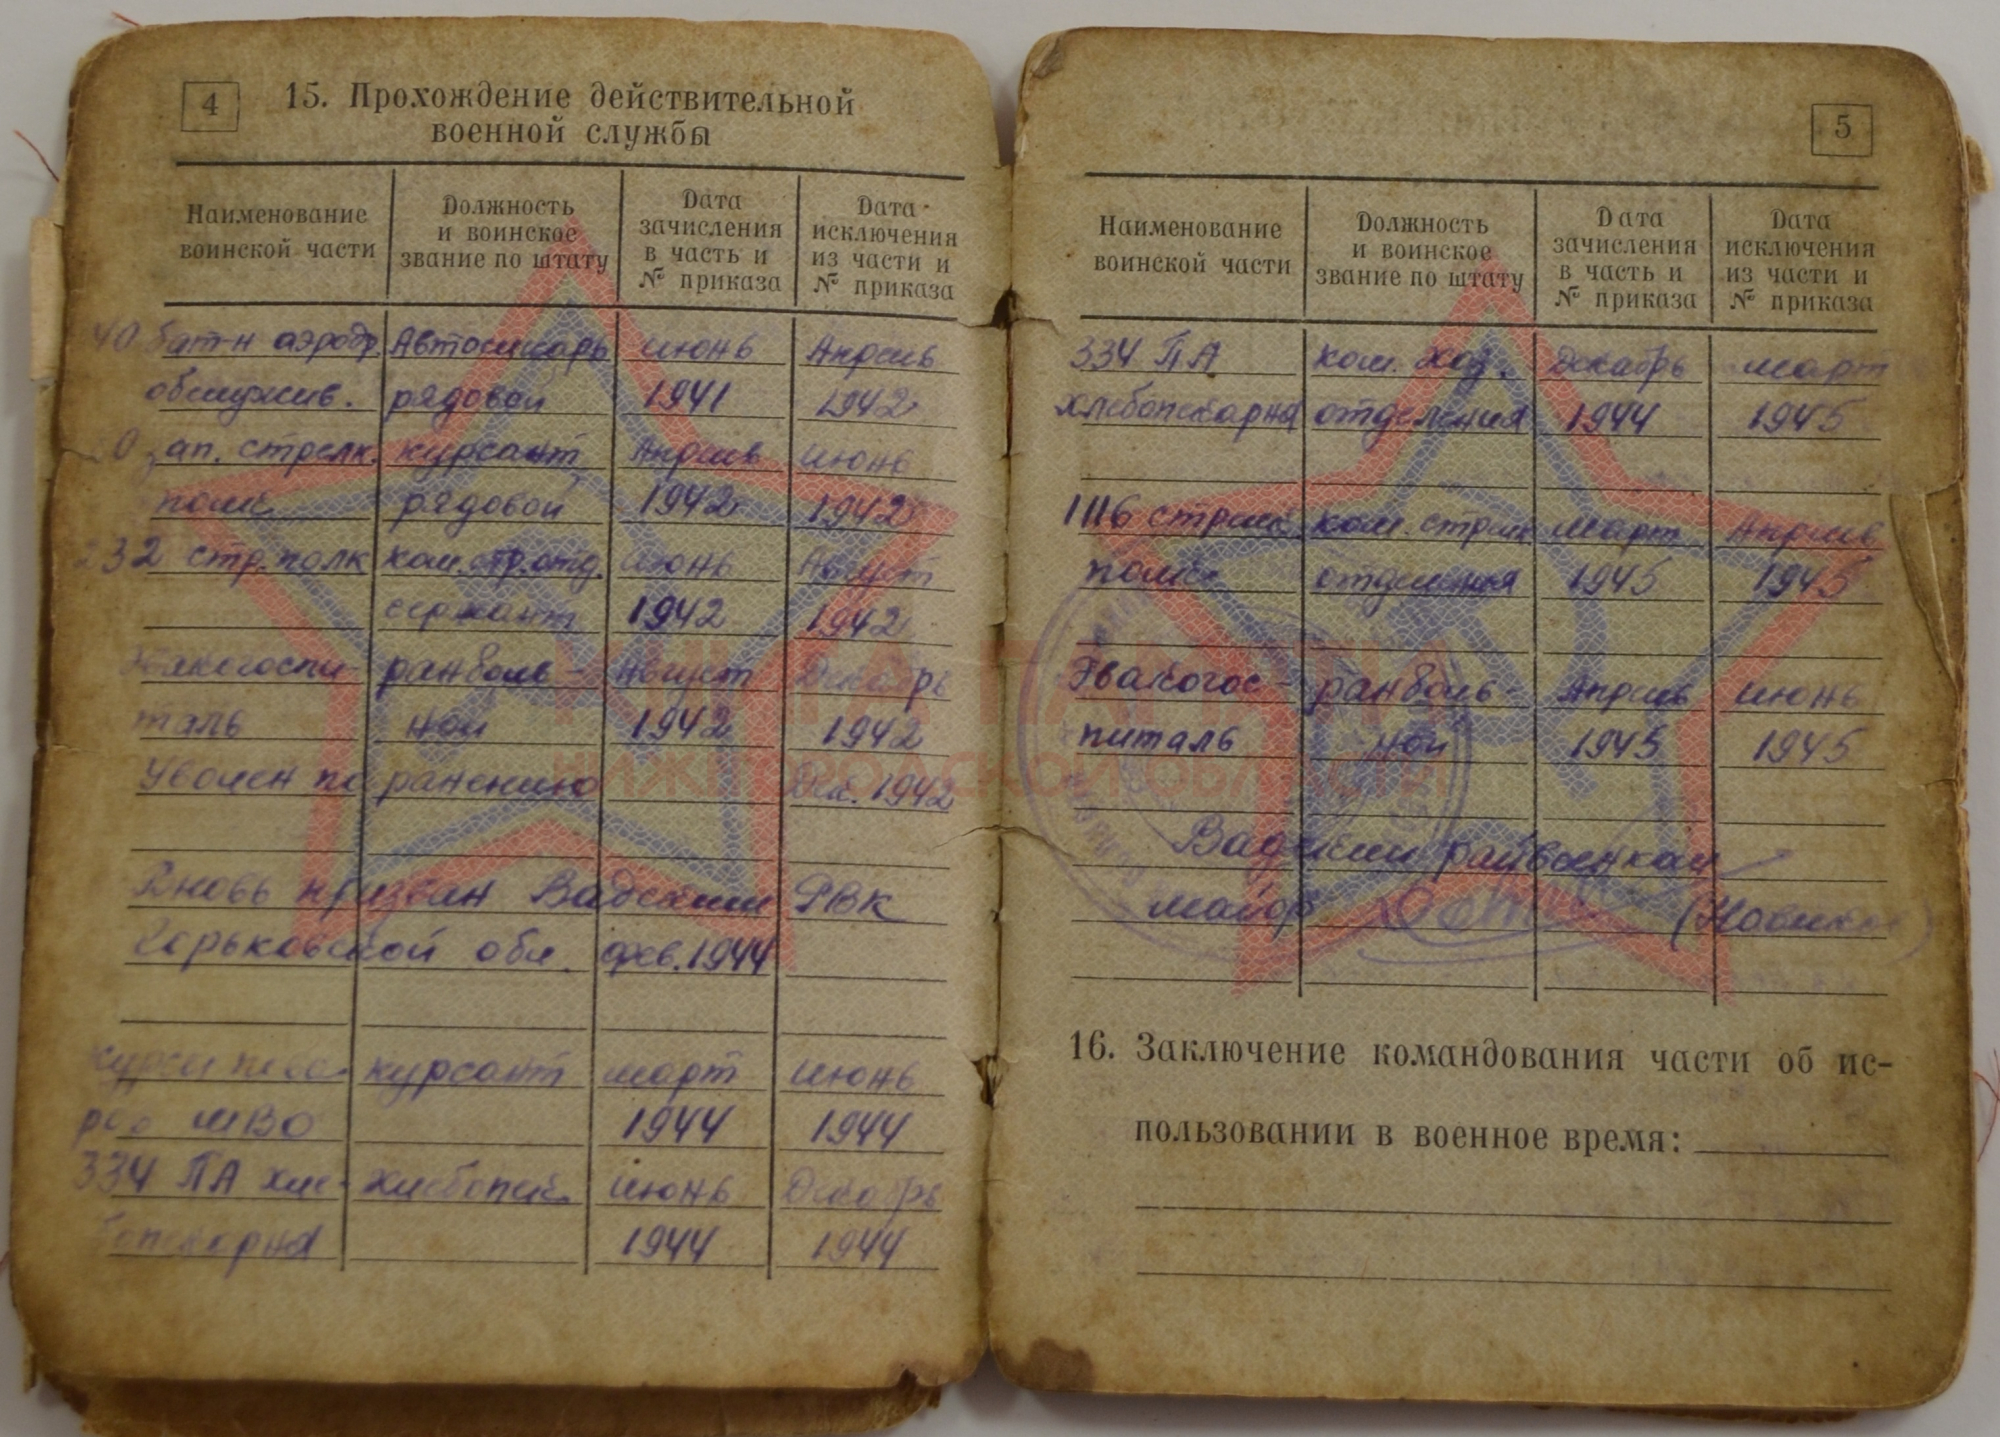 4
15. Прохождение действительной
военной службы
Наименование воинской части
Должность и воинское звание по штату
Дата зачисления в часть и № приказа
Дата исключения из части и № приказа
40 бат-н аэродр. Автослесарь июнь Апрель
обслужив. рядовой 1941 1942
зап. стрелк. курсант Апрель июнь
полк рядовой 1942 1942
232 стр. полк ком. стр. отд. июнь Август
сержант 1942 1942
Эвакогоспи- ранболь- Август Декабрь
таль ной 1942 1942
Уволен по ранению Дек. 1942
Вновь призван Вадским РВК
Горьковской обл. фев. 1944
курсы пова- курсант март июнь
ров МВО 1944 1944
334 ПА хле- хлебопек июнь Декабрь
бопекарня 1944 1944
5
Наименование воинской части
Должность и воинское звание по штату
Дата зачисления в часть и № приказа
Дата исключения из части и № приказа
334 ПА ком. хоз. Декабрь март
хлебопекарня отделения 1944 1945
1116 стрелк. ком. стрелк март Апрель
полк отделения 1945 1945
Эвакогос- ранболь- Апрель июнь
питаль ной 1945 1945
Вадский райвоенком
майор (Новиков)
16. Заключение командования части об ис-
пользовании в военное время:
КНИГА ПАМЯТИ
НИЖЕГОРОДСКОЙ ОБЛАСТИ